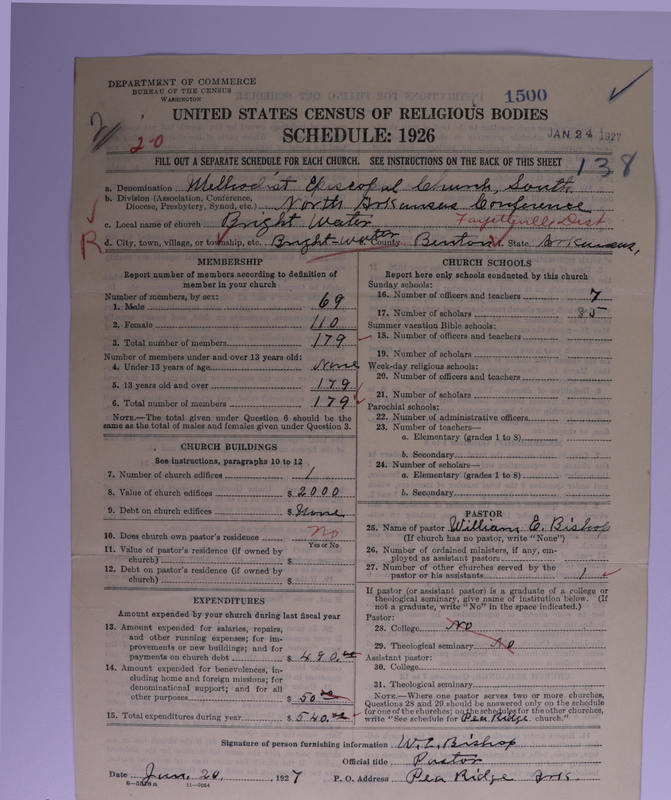 DEPARTMENT OF COMMERCE
BUREAU OF THE CENSUS
WASHINGTON
1500
UNITED STATES CENSUS OF RELIGIOUS BODIES
SCHEDULE: 1926
JAN 24 1927
2-0
138
FILL OUT A SEPARATE SCHEDULE FOR EACH CHURCH. SEE INSTRUCTIONS ON THE BACK OF THIS SHEET
a. Denomination Methodist Episcopal Church, South
b. Division (Association, Conference, Diocese, Presbytery, Synod, etc.) North Arkansas Conference
c. Local name of church Bright Water Fayetteville Dist
R d. City, town, village, or township, etc. Bright-Water County Benton State Arkansas,
MEMBERSHIP
Report number of members according to definition of
member in your church
Number of members, by sex:
1. Male 69
2. Female 110
3. Total number of members 179
Number of members under and over 13 years old:
4. Under 13 years of age None
5. 13 years old and over 179
6. Total number of members 179
NOTE.—The total given under Question 6 should be the
same as the total of males and females given under Question 3.
CHURCH BUILDINGS
See instructions, paragraphs 10 to 12
7. Number of church edifices 1
8. Value of church edifices $ 2000
9. Debt on church edifices $ None
10. Does church own pastor's residence No
Yes or No
11. Value of pastor's residence (if owned by
church) $
12. Debt on pastor's residence (if owned by
church) $
EXPENDITURES
Amount expended by church during last fiscal year
13. Amount expended for salaries, repairs,
and other running expenses; for im-
provements or new buildings; and for
payments on church debt $ 490.00
14. Amount expended for benevolences, in-
cluding home and foreign missions; for
denominational support; and for all
other purposes $ 50.00
15. Total expenditures during year $ 540.00
CHURCH SCHOOLS
Report here only schools conducted by this church
Sunday schools:
16. Number of officers and teachers 7
17. Number of scholars 85
Summer vacation Bible schools:
18. Number of officers and teachers
19. Number of scholars
Week-day religious schools:
20. Number of officers and teachers
21. Number of scholars
Parochial schools:
22. Number of administrative officers
23. Number of teachers—
a. Elementary (grades 1 to 8)
b. Secondary
24. Number of scholars—
a. Elementary (grades 1 to 8)
b. Secondary
PASTOR
25. Name of pastor William E. Bishop
(If church has no pastor, write "None")
26. Number of ordained ministers, if any, em-
ployed as assistant pastors
27. Number of other churches served by the
pastor or his assistants 1
If pastor (or assistant pastor) is a graduate of a college or
theological seminary, give name of institution below. (If
not a graduate, write "No" in the space indicated.)
Pastor:
28. College No
29. Theological seminary No
Assistant pastor:
30. College
31. Theological seminary
NOTE.—Where one pastor serves two or more churches,
Questions 28 and 29 should be answered only on the schedule
for one of the churches; on the schedules for the other churches,
write "See schedule for Pea Ridge church."
Signature of person furnishing information W. E. Bishop
Official title Pastor
Date Jan. 20, 1927 P. O. Address Pea Ridge Ark.